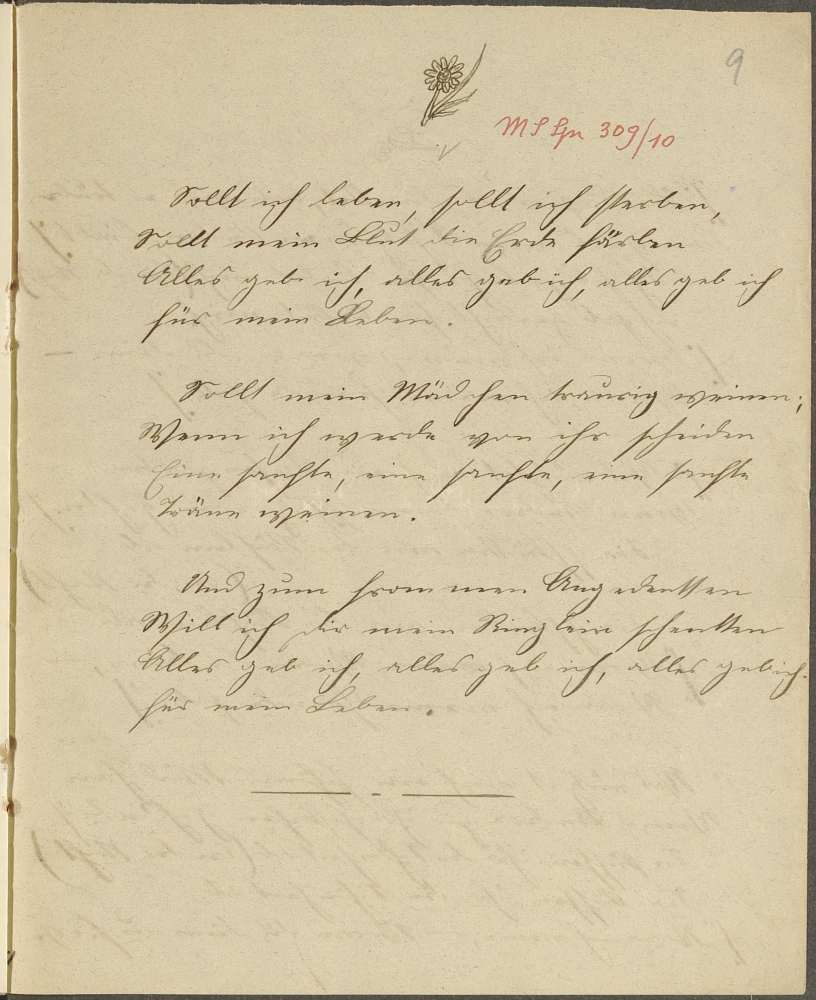 9
MS Lpn 309/10
Sollt ich leben, sollt ich sterben,
Sollt mein Blut die Erde färben
Alles geb ich, alles geb ich, alles geb ich
für mein Leben.
Sollt mein Mädchen traurig weinen;
Wenn ich werde von ihr scheiden
Eine sanfte, eine sanfte, eine sanfte
Träne weinen.
Und zum frommen Angedenkken
Will ich dir mein Ringlein schenkken
Alles geb ich, alles geb ich, alles geb ich
für mein Leben.